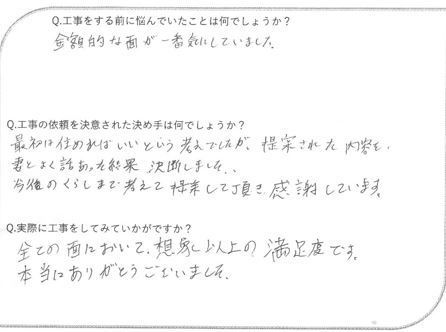 Q.工事をする前に悩んでいたことは何でしょうか？
金額的な面が一番気にしていました。
Q.工事の依頼を決意された決め手は何でしょうか？
最初は住めればいいという考えでしたが、提案された内容を、
妻とよく話あった結果 決断しました。
今後のくらしまで考えて提案して頂き感謝しています。
Q.実際に工事をしてみていかがですか？
全ての面において、想像以上の満足度です。
本当にありがとうございました。